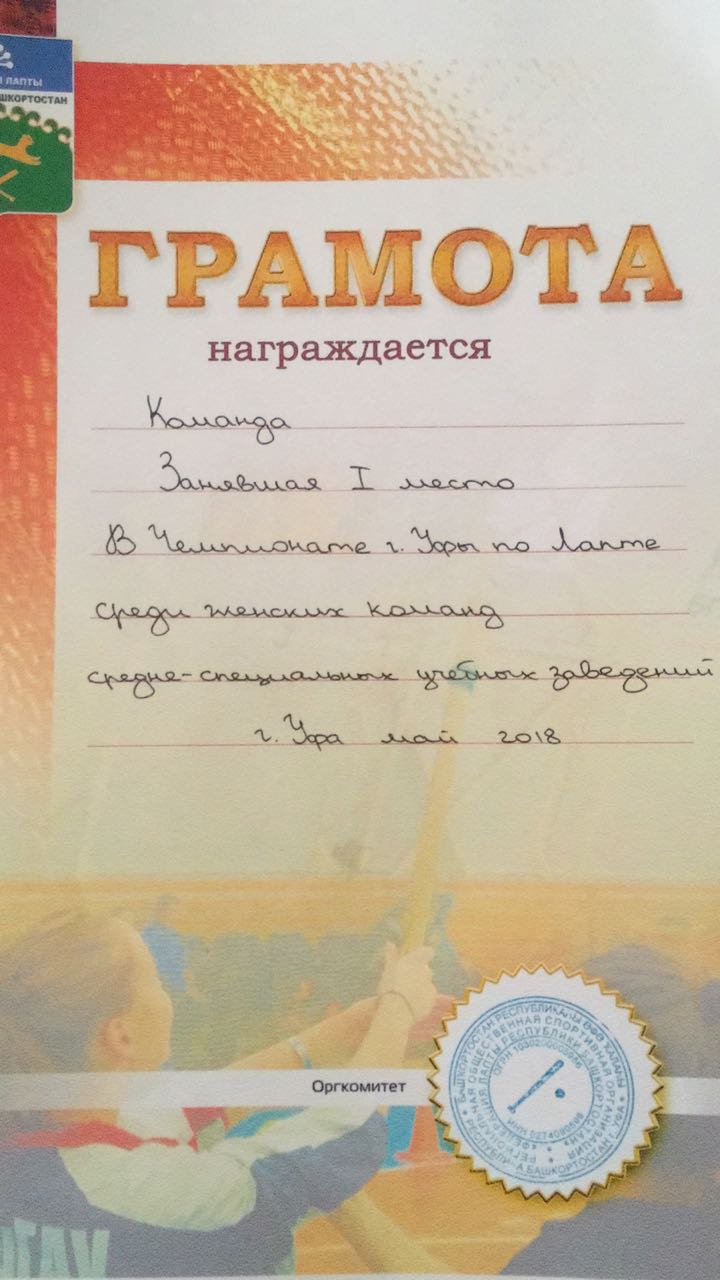 ЛАПТЫ
ШКОРТОСТАН
ГРАМОТА
награждается
Команда
Занявшая I место
В Чемпионате г. Уфы по Лапте
среди женских команд
средне-специальных учебных заведений
г. Уфа май 2018
Оргкомитет
БАШКОРТОСТАН РЕСПУБЛИКАҺЫ ӨФӨ ҠАЛАҺЫ
ОБЩЕСТВЕННАЯ СПОРТИВНАЯ ОРГАНИЗАЦИЯ
ЛАПТЫ РЕСПУБЛИКИ БАШКОРТОСТАН
ОГРН
ИНН
БАШКОРТОСТАН Г.УФА
ГАУ